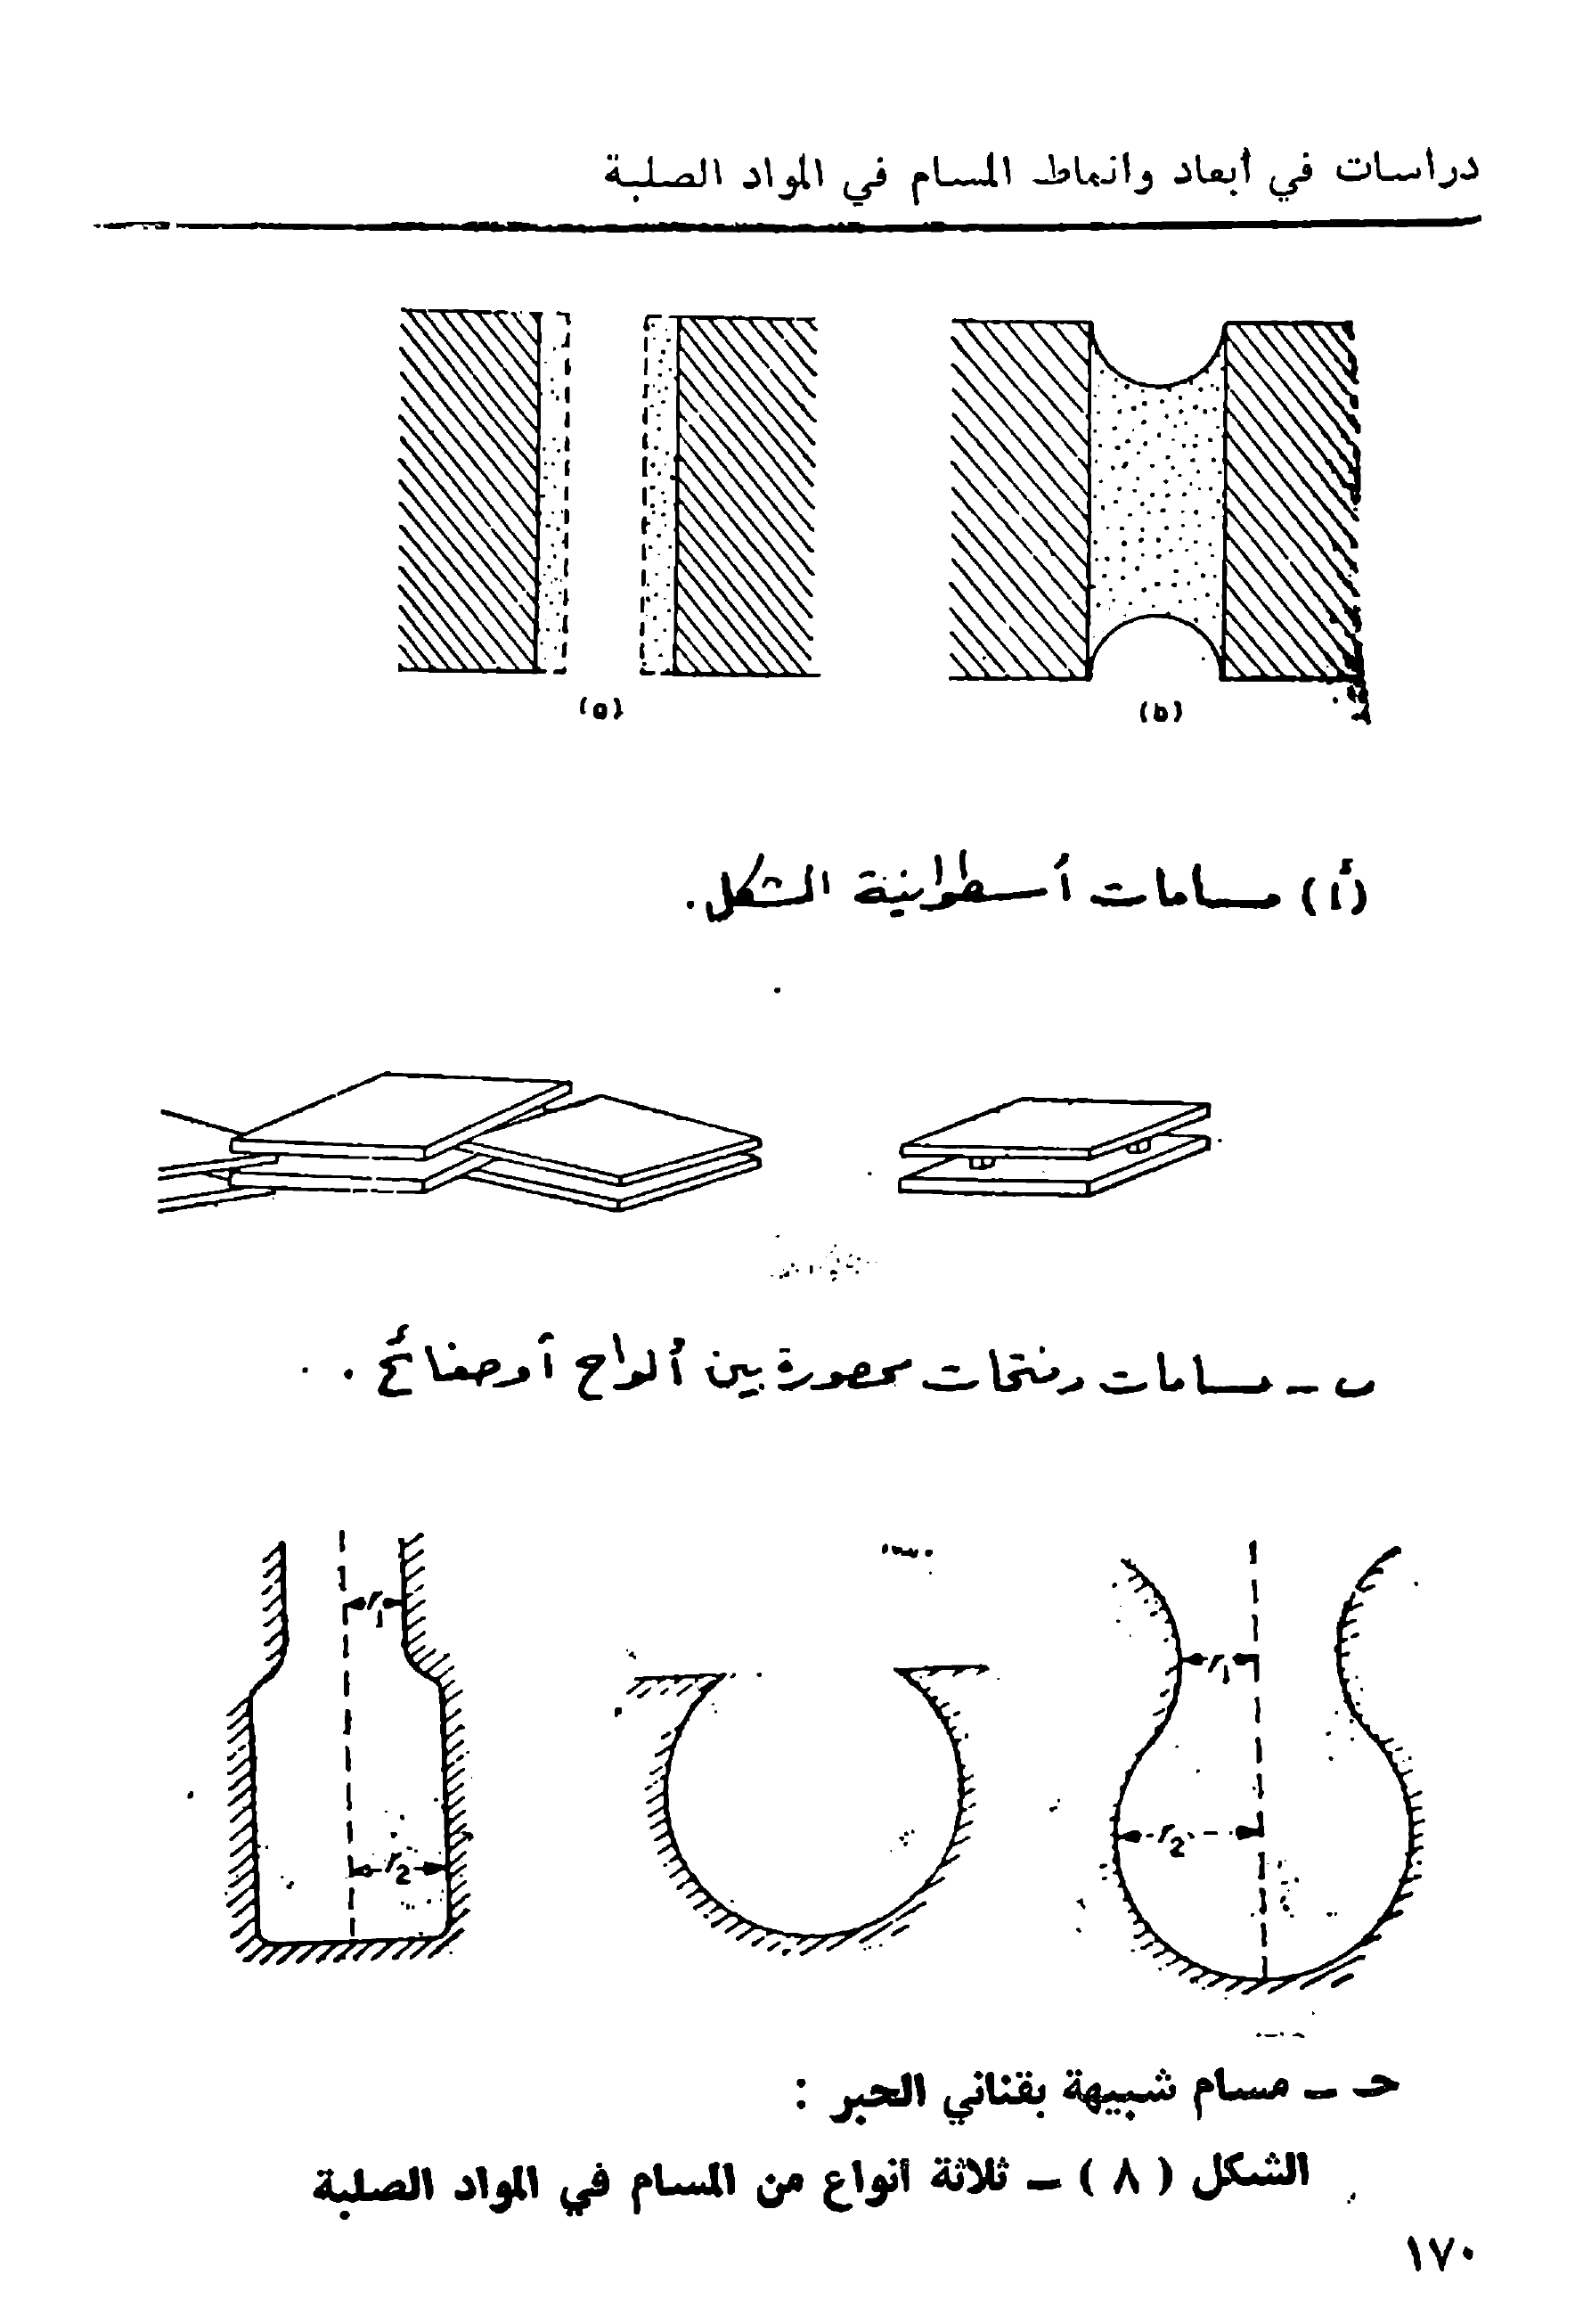 دراسات في أبعاد وانماط المسام في المواد الصلبة
(a) (b)
(أ) مسامات أسطوانية الشكل.
ب - مسامات وفتحات محصورة بين ألواح أو صفائح .
r1 r1
r2 r2
حـ - مسام شبيهة بقناني الحبر :
الشكل ( ٨ ) - ثلاثة أنواع من المسام في المواد الصلبة
١٧٠